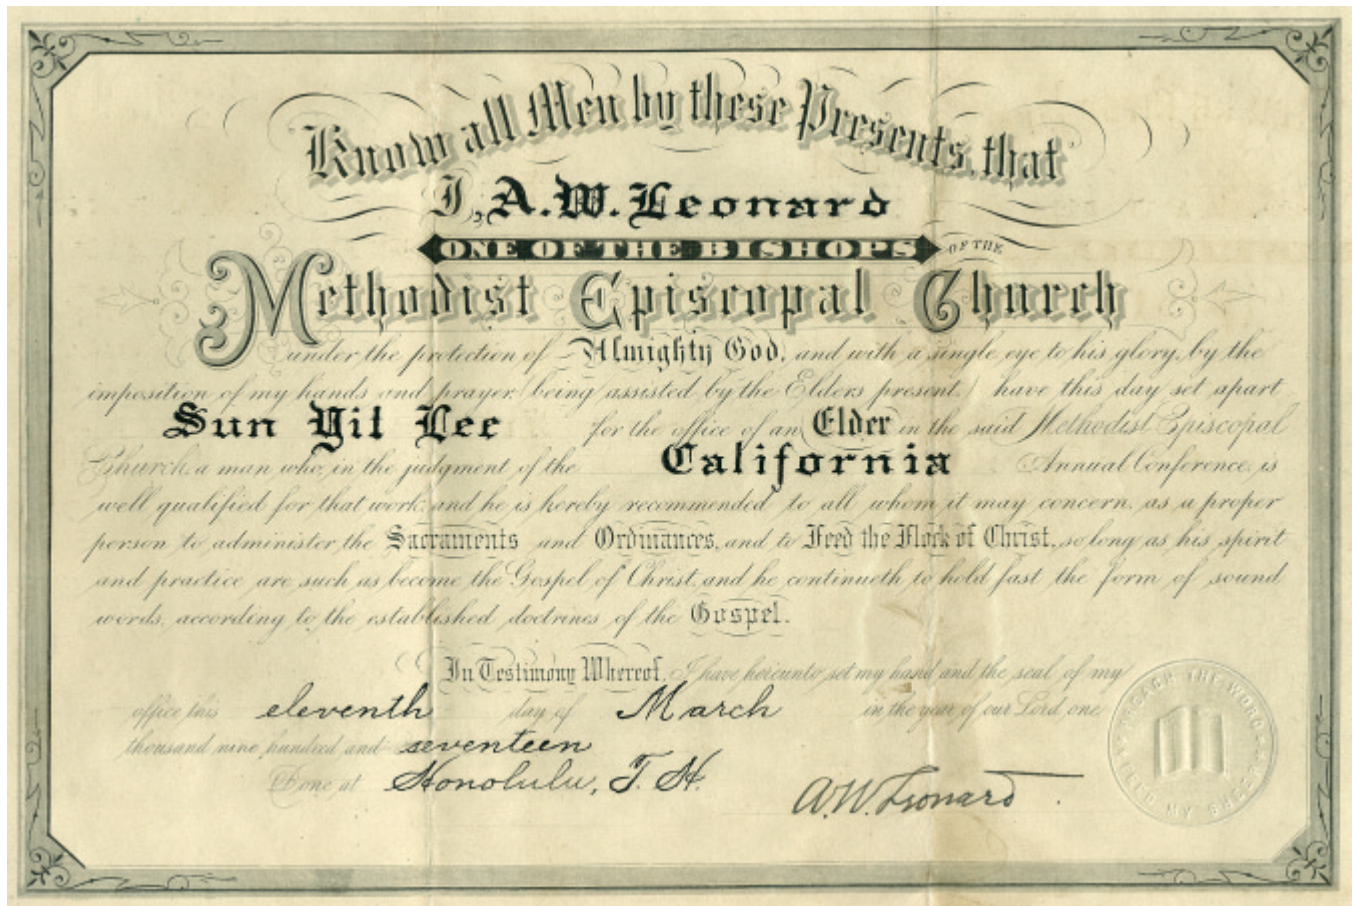 Know all Men by these Presents, that
I, A.W. Leonard
ONE OF THE BISHOPS OF THE
Methodist Episcopal Church
under the protection of Almighty God, and with a single eye to his glory, by the
imposition of my hands and prayer, (being assisted by the Elders present,) have this day set apart
Sun Yil Lee for the office of an Elder in the said Methodist Episcopal
Church, a man who, in the judgment of the California Annual Conference, is
well qualified for that work; and he is hereby recommended to all whom it may concern, as a proper
person to administer the Sacraments and Ordinances, and to Feed the Flock of Christ, so long as his spirit
and practice are such as become the Gospel of Christ, and he continueth to hold fast the form of sound
words, according to the established doctrines of the Gospel.
In Testimony Whereof, I have hereunto set my hand and the seal of my
office this eleventh day of March in the year of our Lord one
thousand nine hundred and seventeen
Done at Honolulu, T. H.
A.W. Leonard
PREACH THE WORD
FEED MY SHEEP